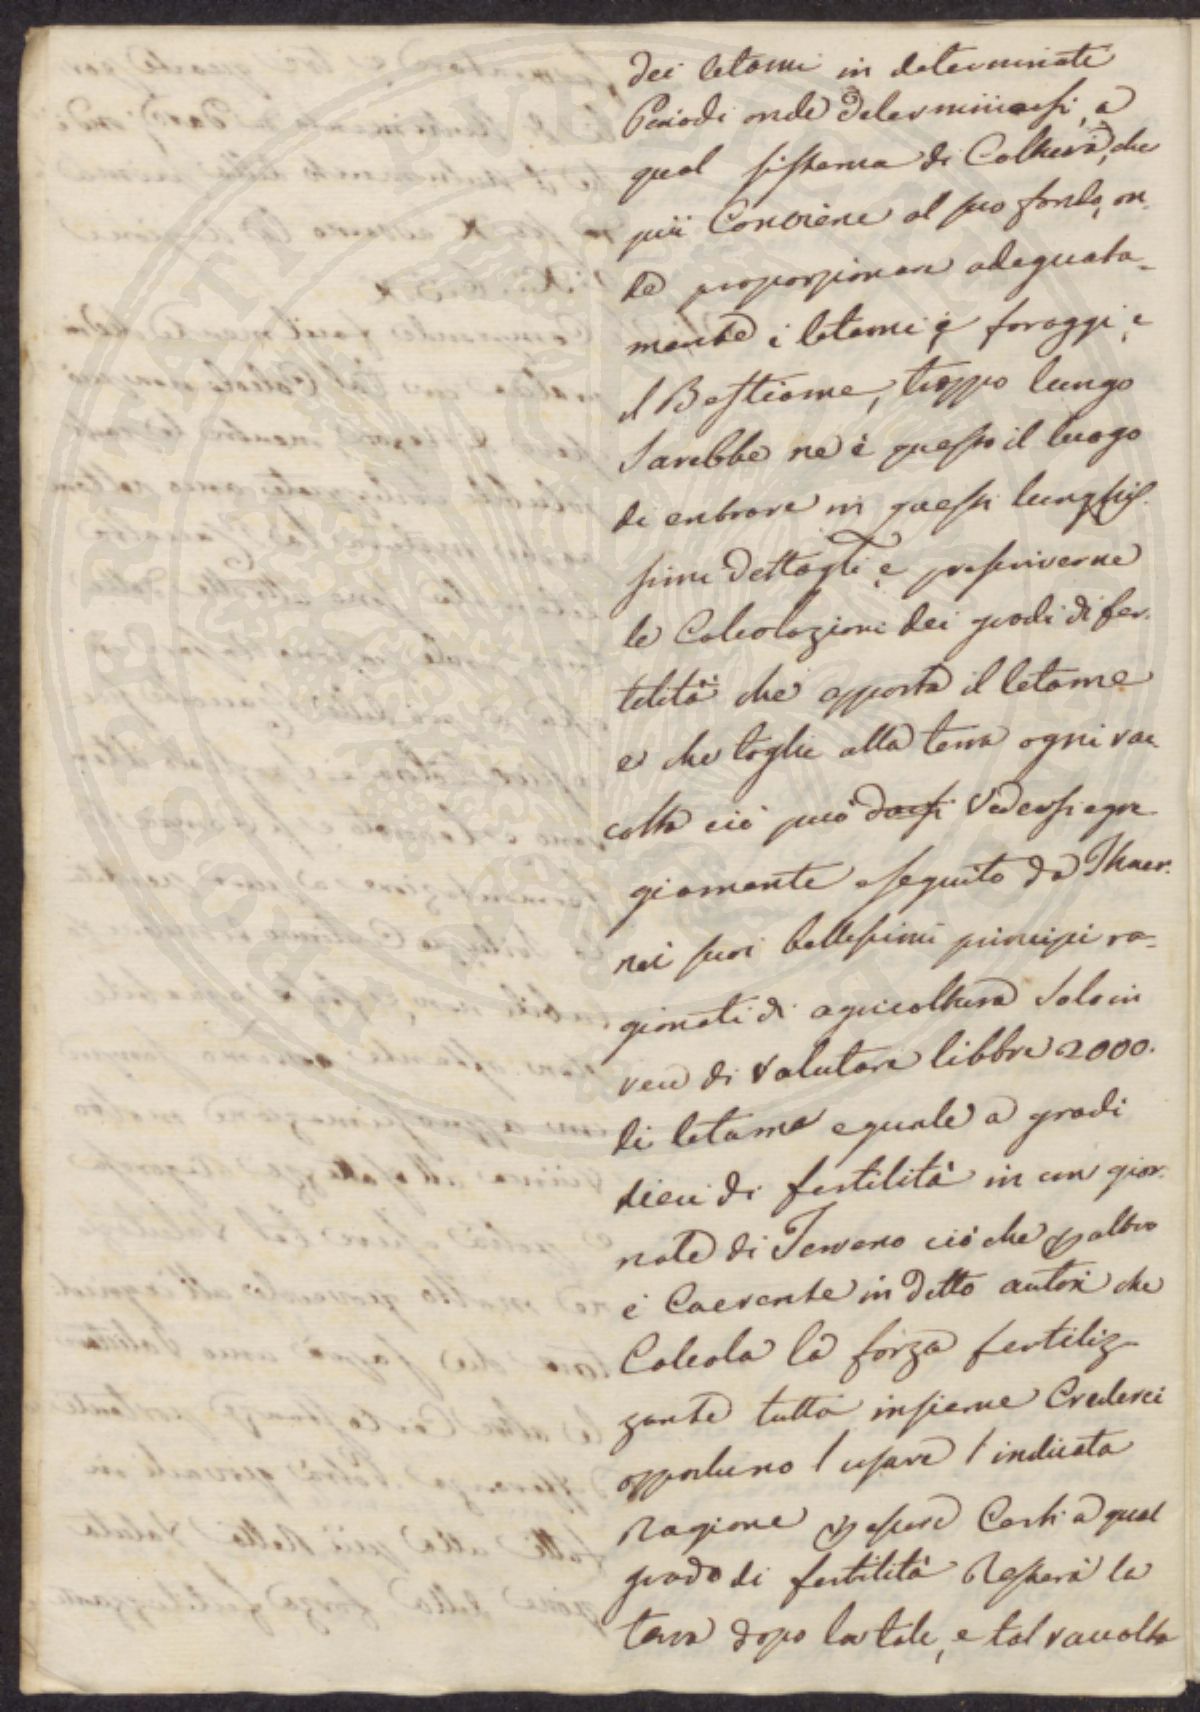 dei letami in determinati
Periodi onde determinarsi, a
qual sistema di Coltura, che
più Conviene al suo fondo, on-
de proporzionare adeguata-
mente i letami i foraggi, e
il Bestiame, troppo lungo
Sarebbe ne è questo il luogo
di entrare in questi lunghis-
simi dettagli e prescriverne
le Calcolazioni dei gradi di fer-
tilità che apporta il letame
e che toglie alla terra ogni rac-
colta ciò può darsi Vedersi egre-
giamente eseguito da Thaer.
nei suoi bellissimi principi ra-
gionati di agricoltura Solo in
vece di valutare libbre 2000.
di letame eguale a gradi
dieci di fertilità in un gior-
nate di Terreno ciò che per altro
è Coerente in detto autore che
Calcola la forza fertiliz-
zante tutta insieme Crederei
opportuno l usare l indicata
Ragione per essere Certi a qual
grado di fertilità Resterà la
terra dopo la tale, e tal raccolta